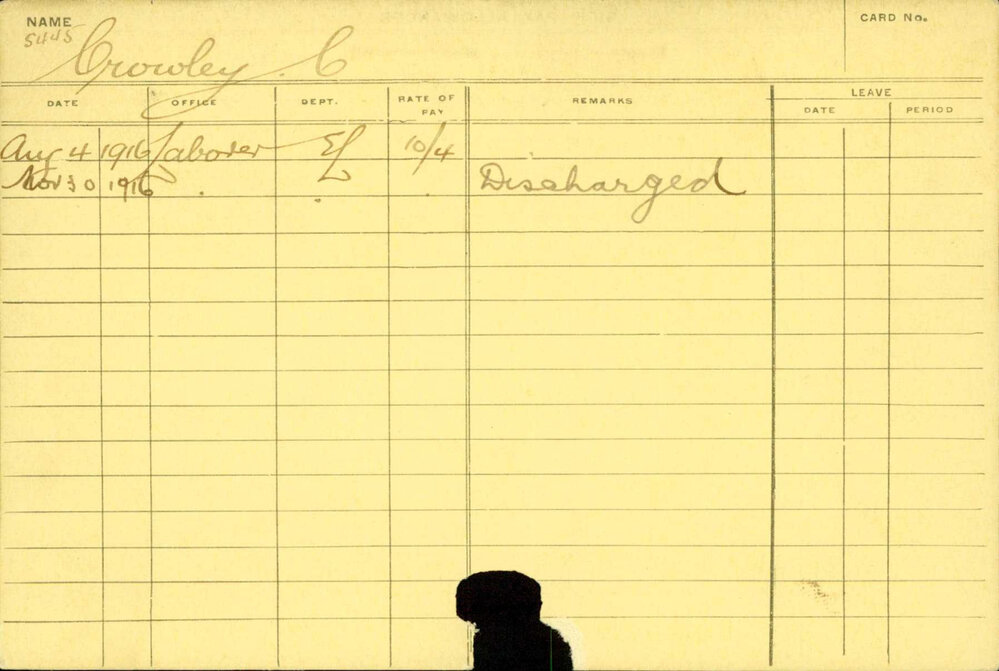 NAME
CARD No.
5445
Crowley C
DATE OFFICE DEPT. RATE OF PAY REMARKS LEAVE
DATE PERIOD
Aug 4 1916 Laborer EL 10/4
Nov 30 1916 . . . Discharged